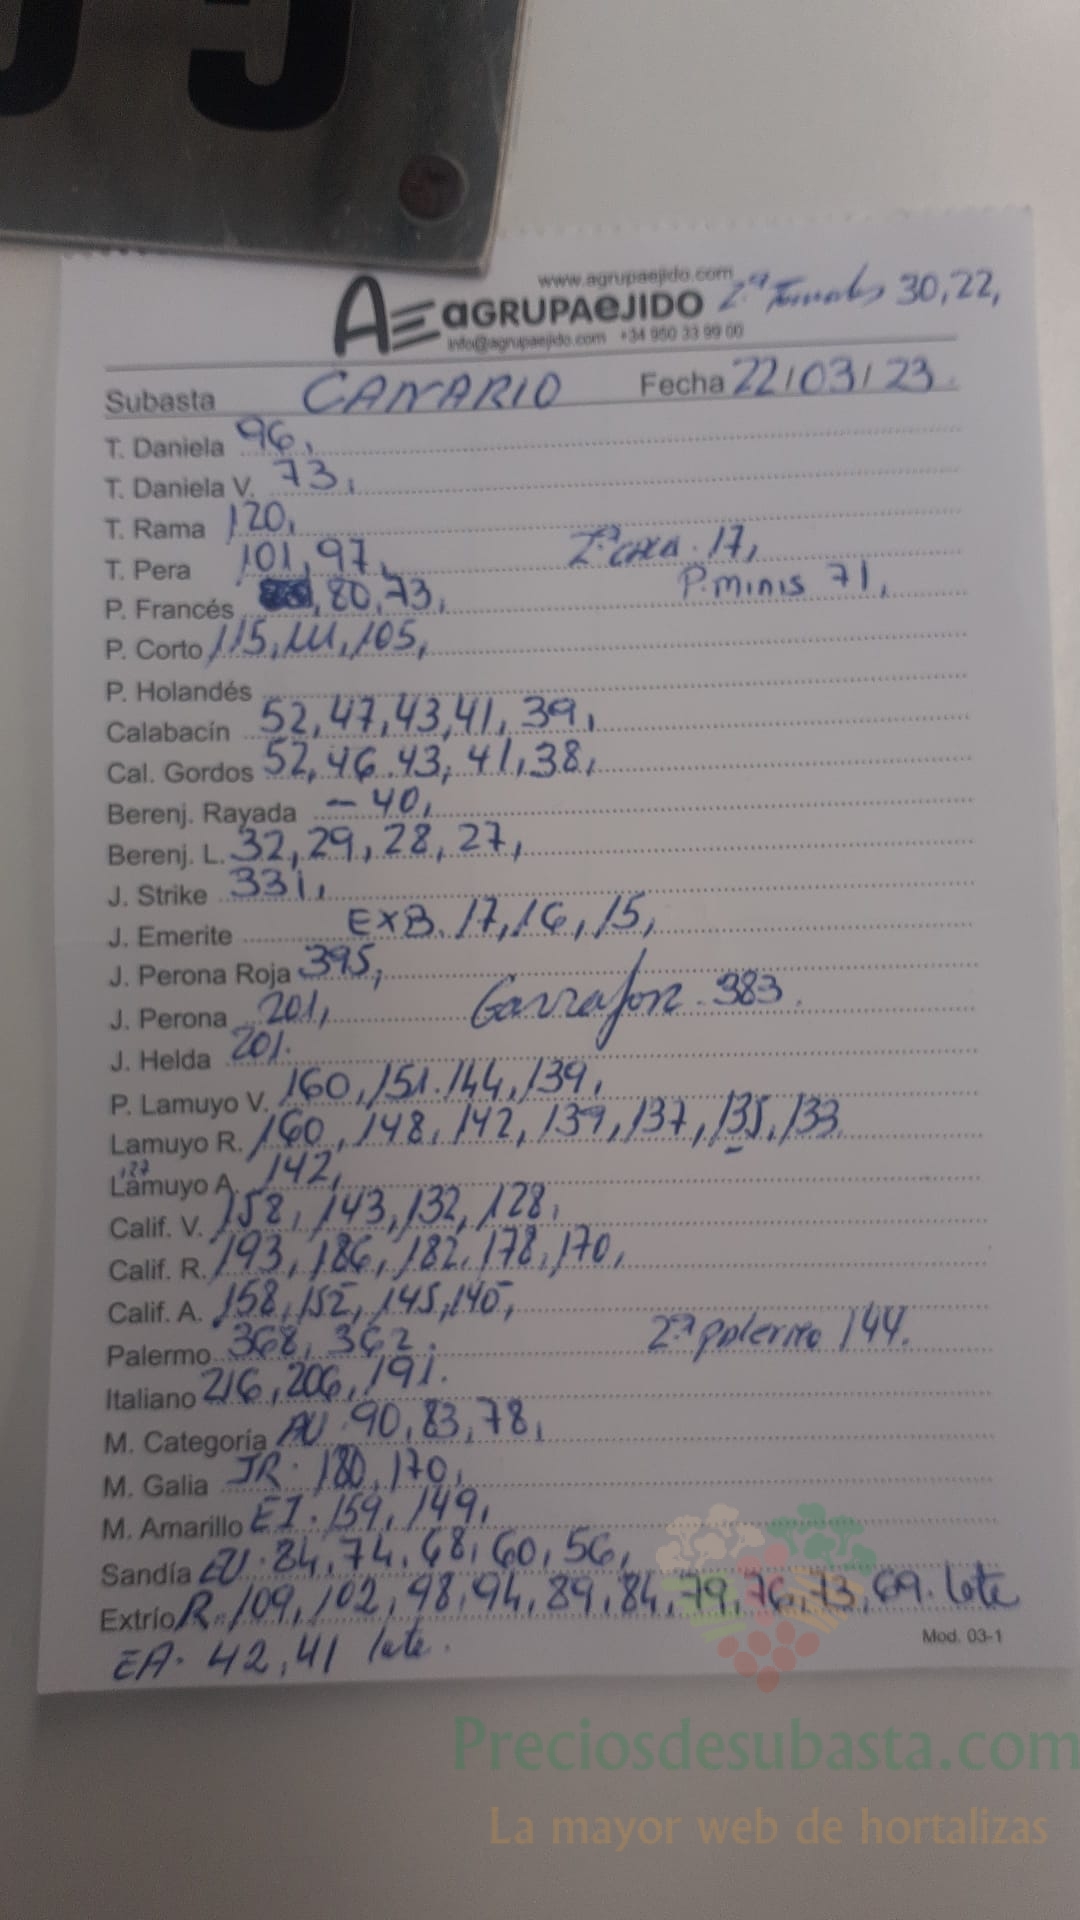 95
www.agrupaejido.com
AE aGRUPAeJIDO 2ª Tomates 30,22,
info@agrupaejido.com +34 950 33 99 00
Subasta CANARIO Fecha 22/03/23.
T. Daniela 96,
T. Daniela V. 73,
T. Rama 120,
T. Pera 101, 97, 2ª CHA. 17,
P. Francés ,80,73, P. MINIS 71,
P. Corto 115,111,105,
P. Holandés
Calabacín 52,47,43,41,39,
Cal. Gordos 52,46.43,41,38,
Berenj. Rayada - 40,
Berenj. L. 32,29,28,27,
J. Strike 331,
J. Emerite EXB. 17,16,15,
J. Perona Roja 395,
J. Perona 201, Garrafon. 383.
J. Helda 201.
P. Lamuyo V. 160,151.144,139,
Lamuyo R. 160,148,142,139,137,135,133,
127
Lamuyo A. 142,
Calif. V. 158,143,132,128,
Calif. R. 193,186,182.178,170,
Calif. A. 158,152,145,140,
Palermo 368, 362. 2ª palermo 144.
Italiano 216,206,191.
M. Categoría AU. 90,83,78,
M. Galia JR. 180,170,
M. Amarillo EI. 159,149,
Sandía EU. 84,74,68,60,56,
Extrío R. 109,102,98,94,89,84,79,76,73,69. lote
EA. 42,41 lote.
Mod. 03-1
Preciosdesubasta.com
La mayor web de hortalizas